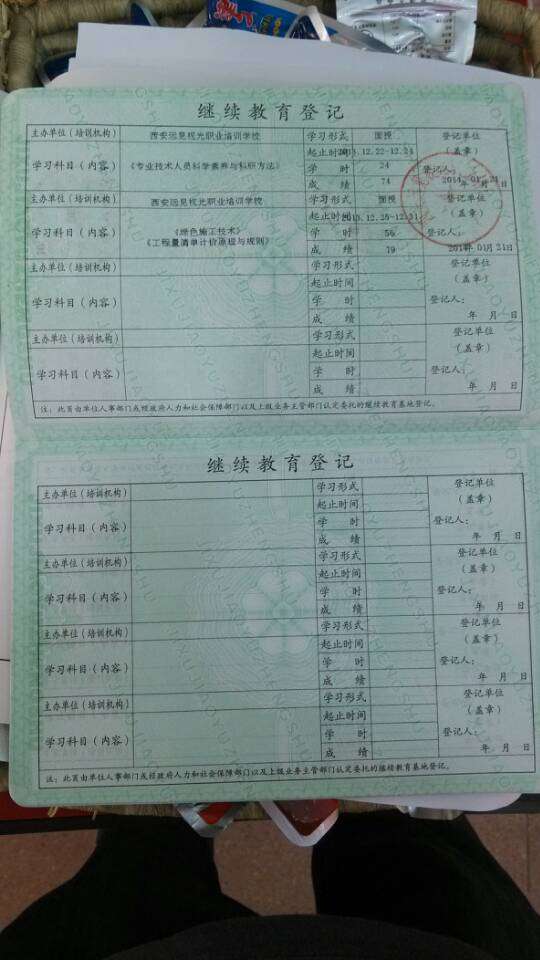 继续教育登记
主办单位(培训机构) 西安远见视光职业培训学校 学习形式 面授 登记单位
(盖章)
学习科目(内容) 《专业技术人员科学素养与科研方法》 起止时间 .12.22-12.24
学 时 24 登记人:
成 绩 74 2014年01月24日
主办单位(培训机构) 西安远见视光职业培训学校 学习形式 面授 登记单位
(盖章)
学习科目(内容) 《绿色施工技术》 起止时间 .12.25-12.31
《工程量清单计价原理与规则》 学 时 56 登记人:
成 绩 79 2014年01月24日
主办单位(培训机构) 学习形式 登记单位
起止时间 (盖章)
学习科目(内容) 学 时 登记人:
成 绩 年 月 日
主办单位(培训机构) 学习形式 登记单位
起止时间 (盖章)
学习科目(内容) 学 时 登记人:
成 绩 年 月 日
注:此页由单位人事部门或经政府人力和社会保障部门以及上级业务主管部门认定委托的继续教育基地登记。
继续教育登记
主办单位(培训机构) 学习形式 登记单位
起止时间 (盖章)
学习科目(内容) 学 时 登记人:
成 绩 年 月 日
主办单位(培训机构) 学习形式 登记单位
起止时间 (盖章)
学习科目(内容) 学 时 登记人:
成 绩 年 月 日
主办单位(培训机构) 学习形式 登记单位
起止时间 (盖章)
学习科目(内容) 学 时 登记人:
成 绩 年 月 日
主办单位(培训机构) 学习形式 登记单位
起止时间 (盖章)
学习科目(内容) 学 时 登记人:
成 绩 年 月 日
注:此页由单位人事部门或经政府人力和社会保障部门以及上级业务主管部门认定委托的继续教育基地登记。